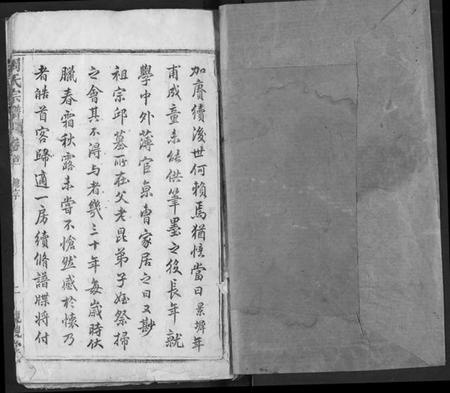 加賡續後世何賴焉猶憶當日景墀年
甫成童未能供筆墨之役長年就
學中外薄宦京曹家居之日又尠
祖宗邱墓所在父老昆弟子姪祭掃
之會其不得與者幾三十年每歲時伏
臘春霜秋露未嘗不愴然感於懷乃
者皓首言歸適一房續脩譜牒將付
劉氏宗譜 卷首 序 二